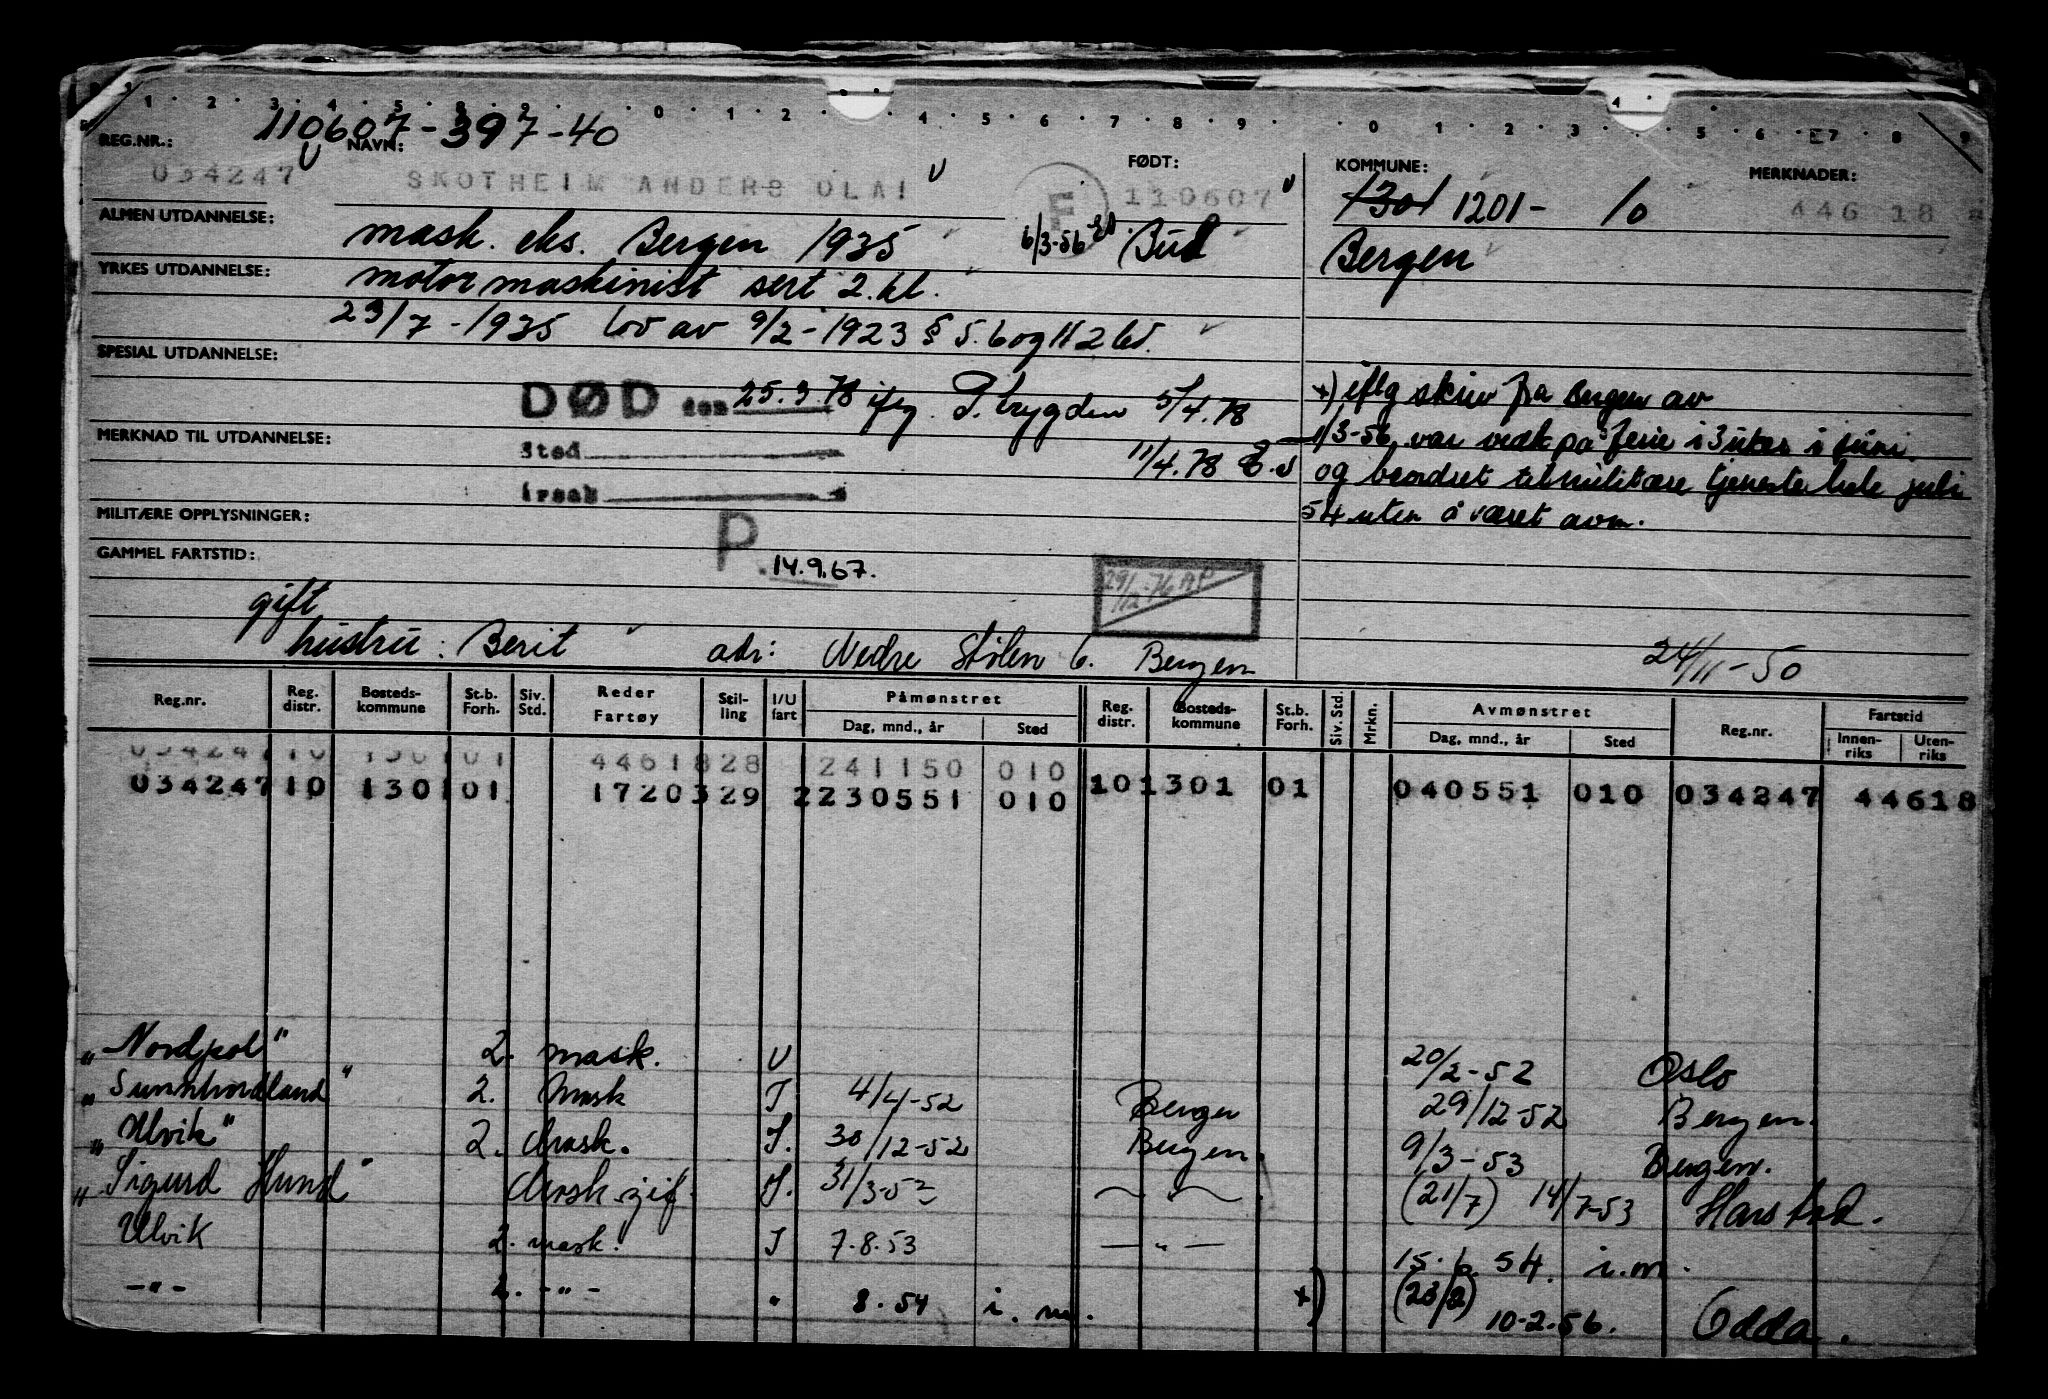 110607-39740
REG.NR.: NAVN: FØDT: KOMMUNE: MERKNADER:
034247 SKOTHEIM ANDERS OLAI F 110607 1301 1201- 10 446 18
ALMEN UTDANNELSE: mask. eks. Bergen 1935 6/3-56 Bud Bergen
YRKES UTDANNELSE: motormaskinist sert 2. kl.
23/7-1935 lov av 9/2-1923 § 5. 6 og 11 2 ld.
SPESIAL UTDANNELSE:
DØD den 25.3.78 ifg. P.trygden 5/4.78
11/4.78
MERKNAD TIL UTDANNELSE: Sted
Årsak
+) iflg skriv fra Bergen av
1/3-56, var vekk på ferie i 3 uker i juni
og beordret til militære tjeneste hele juli
54 uten å været avm.
MILITÆRE OPPLYSNINGER:
P. 14.9.67.
GAMMEL FARTSTID:
29/12-76
gift
hustru: Berit adr: Nedre Stølen 6. Bergen
24/11-50
Reg.nr. Reg. distr. Bosteds-kommune St.b. Forh. Siv. Std. Reder Fartøy Stil-ling I/U fart Påmønstret Dag, mnd., år Sted Reg. distr. Bosteds-kommune St.b. Forh. Siv. Std. Mrkn. Avmønstret Dag, mnd., år Sted Reg.nr. Fartstid Innen-riks Uten-riks
034247 10 1301 01 4461828 241150 010
034247 10 1301 01 1720329 2 230551 010 10 1301 01 040551 010 034247 44618
"Nordpol" 2. mask. U 20/2-52 Oslo
"Sunnhordland" 2. Mask I 4/4-52 Bergen 29/12-52 Bergen.
"Ulvik" 2. Mask. I. 30/12-52 Bergen. 9/3-53 Bergen.
"Sigurd Hund" Mask I. 31/3-52 - " - (21/7) 14/7-53 Harstad.
Ulvik 2. mask. I 7.8.53 - " - 15.6.54. i.m.
- " - 2. - " - " 8.54 i.m. +) (23/2) 10-2-56. Odda.